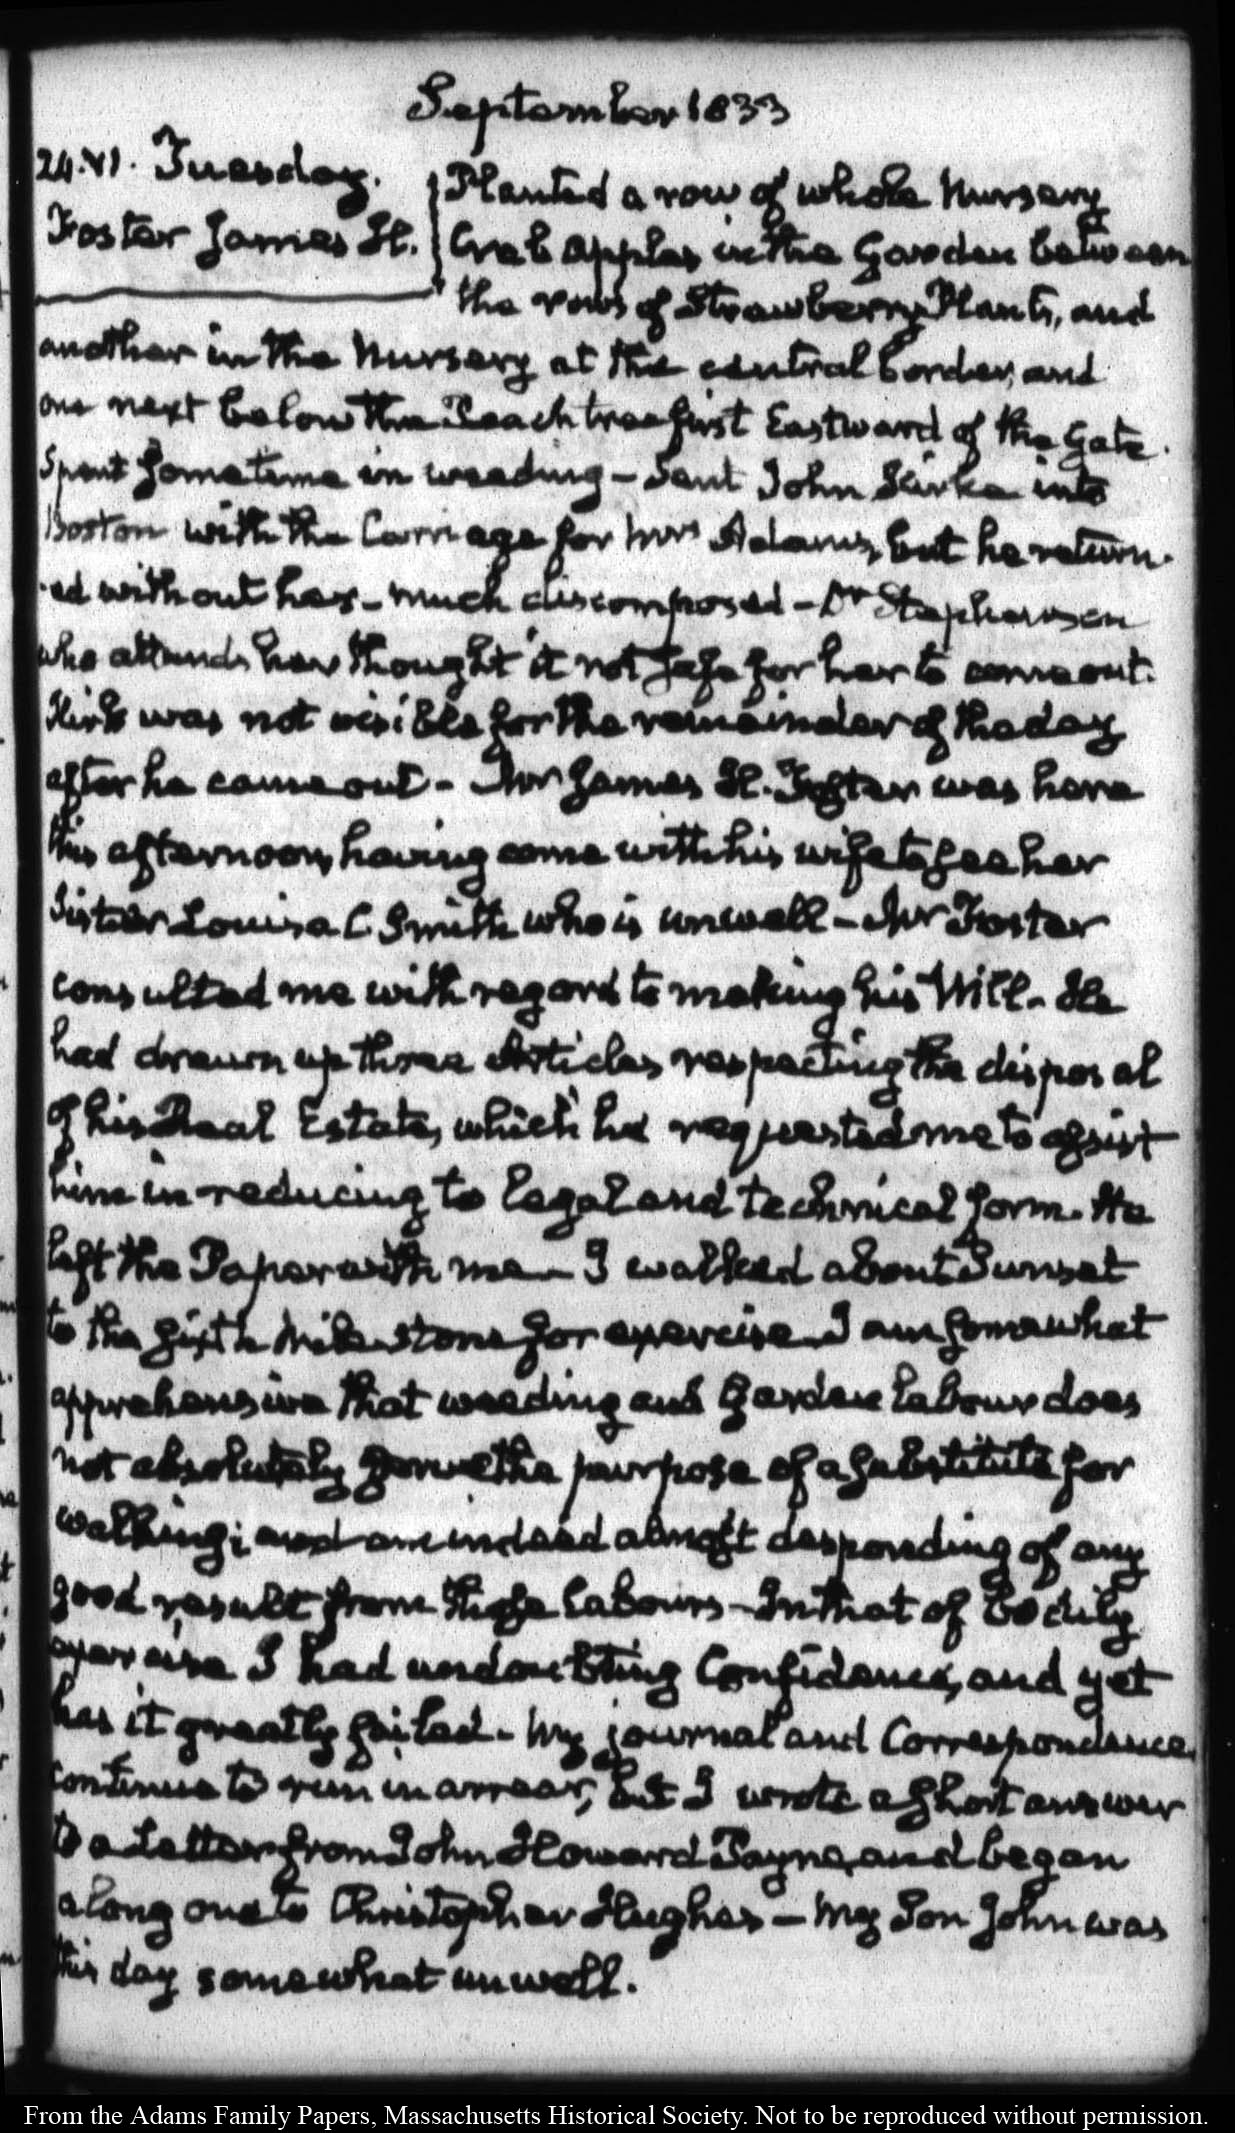 September 1833
24. VI. Tuesday.
Foster James H.
Planted a row of whole Nursery
Crab apples in the Garden between
the rows of Strawberry Plants, and
another in the Nursery at the central border, and
one next below the Peach tree first Eastward of the Gate.
Spent some time in weeding – Sent John Kirke into
Boston with the Carriage for Mrs Adams, but he return-
-ed without her – much discomposed – Dr Stephenson
who attends her thought it not safe for her to come out.
Kirk was not visible for the remainder of the day
after he came out – Mr James H. Foster was here
this afternoon, having come with his wife to see her
Sister Louisa C. Smith who is unwell – Mr Foster
consulted me with regard to making his Will. He
had drawn up three Articles respecting the disposal
of his Real Estate, which he requested me to assist
him in reducing to legal and technical form. He
left the Paper with me – I walked about Sunset
to the sixth Mile stone for exercise. I am somewhat
apprehensive that weeding and Garden labour does
not absolutely serve the purpose of a substitute for
walking; and am indeed almost desponding of any
good result from those labours – In that of bodily
exercise I had undoubting Confidence, and yet
has it greatly failed – My journal and Correspondence
continue to run in arrear, but I wrote a short answer
to a Letter from John Howard Payne, and began
a long one to Christopher Hughes – My Son John was
this day somewhat unwell.
From the Adams Family Papers, Massachusetts Historical Society. Not to be reproduced without permission.